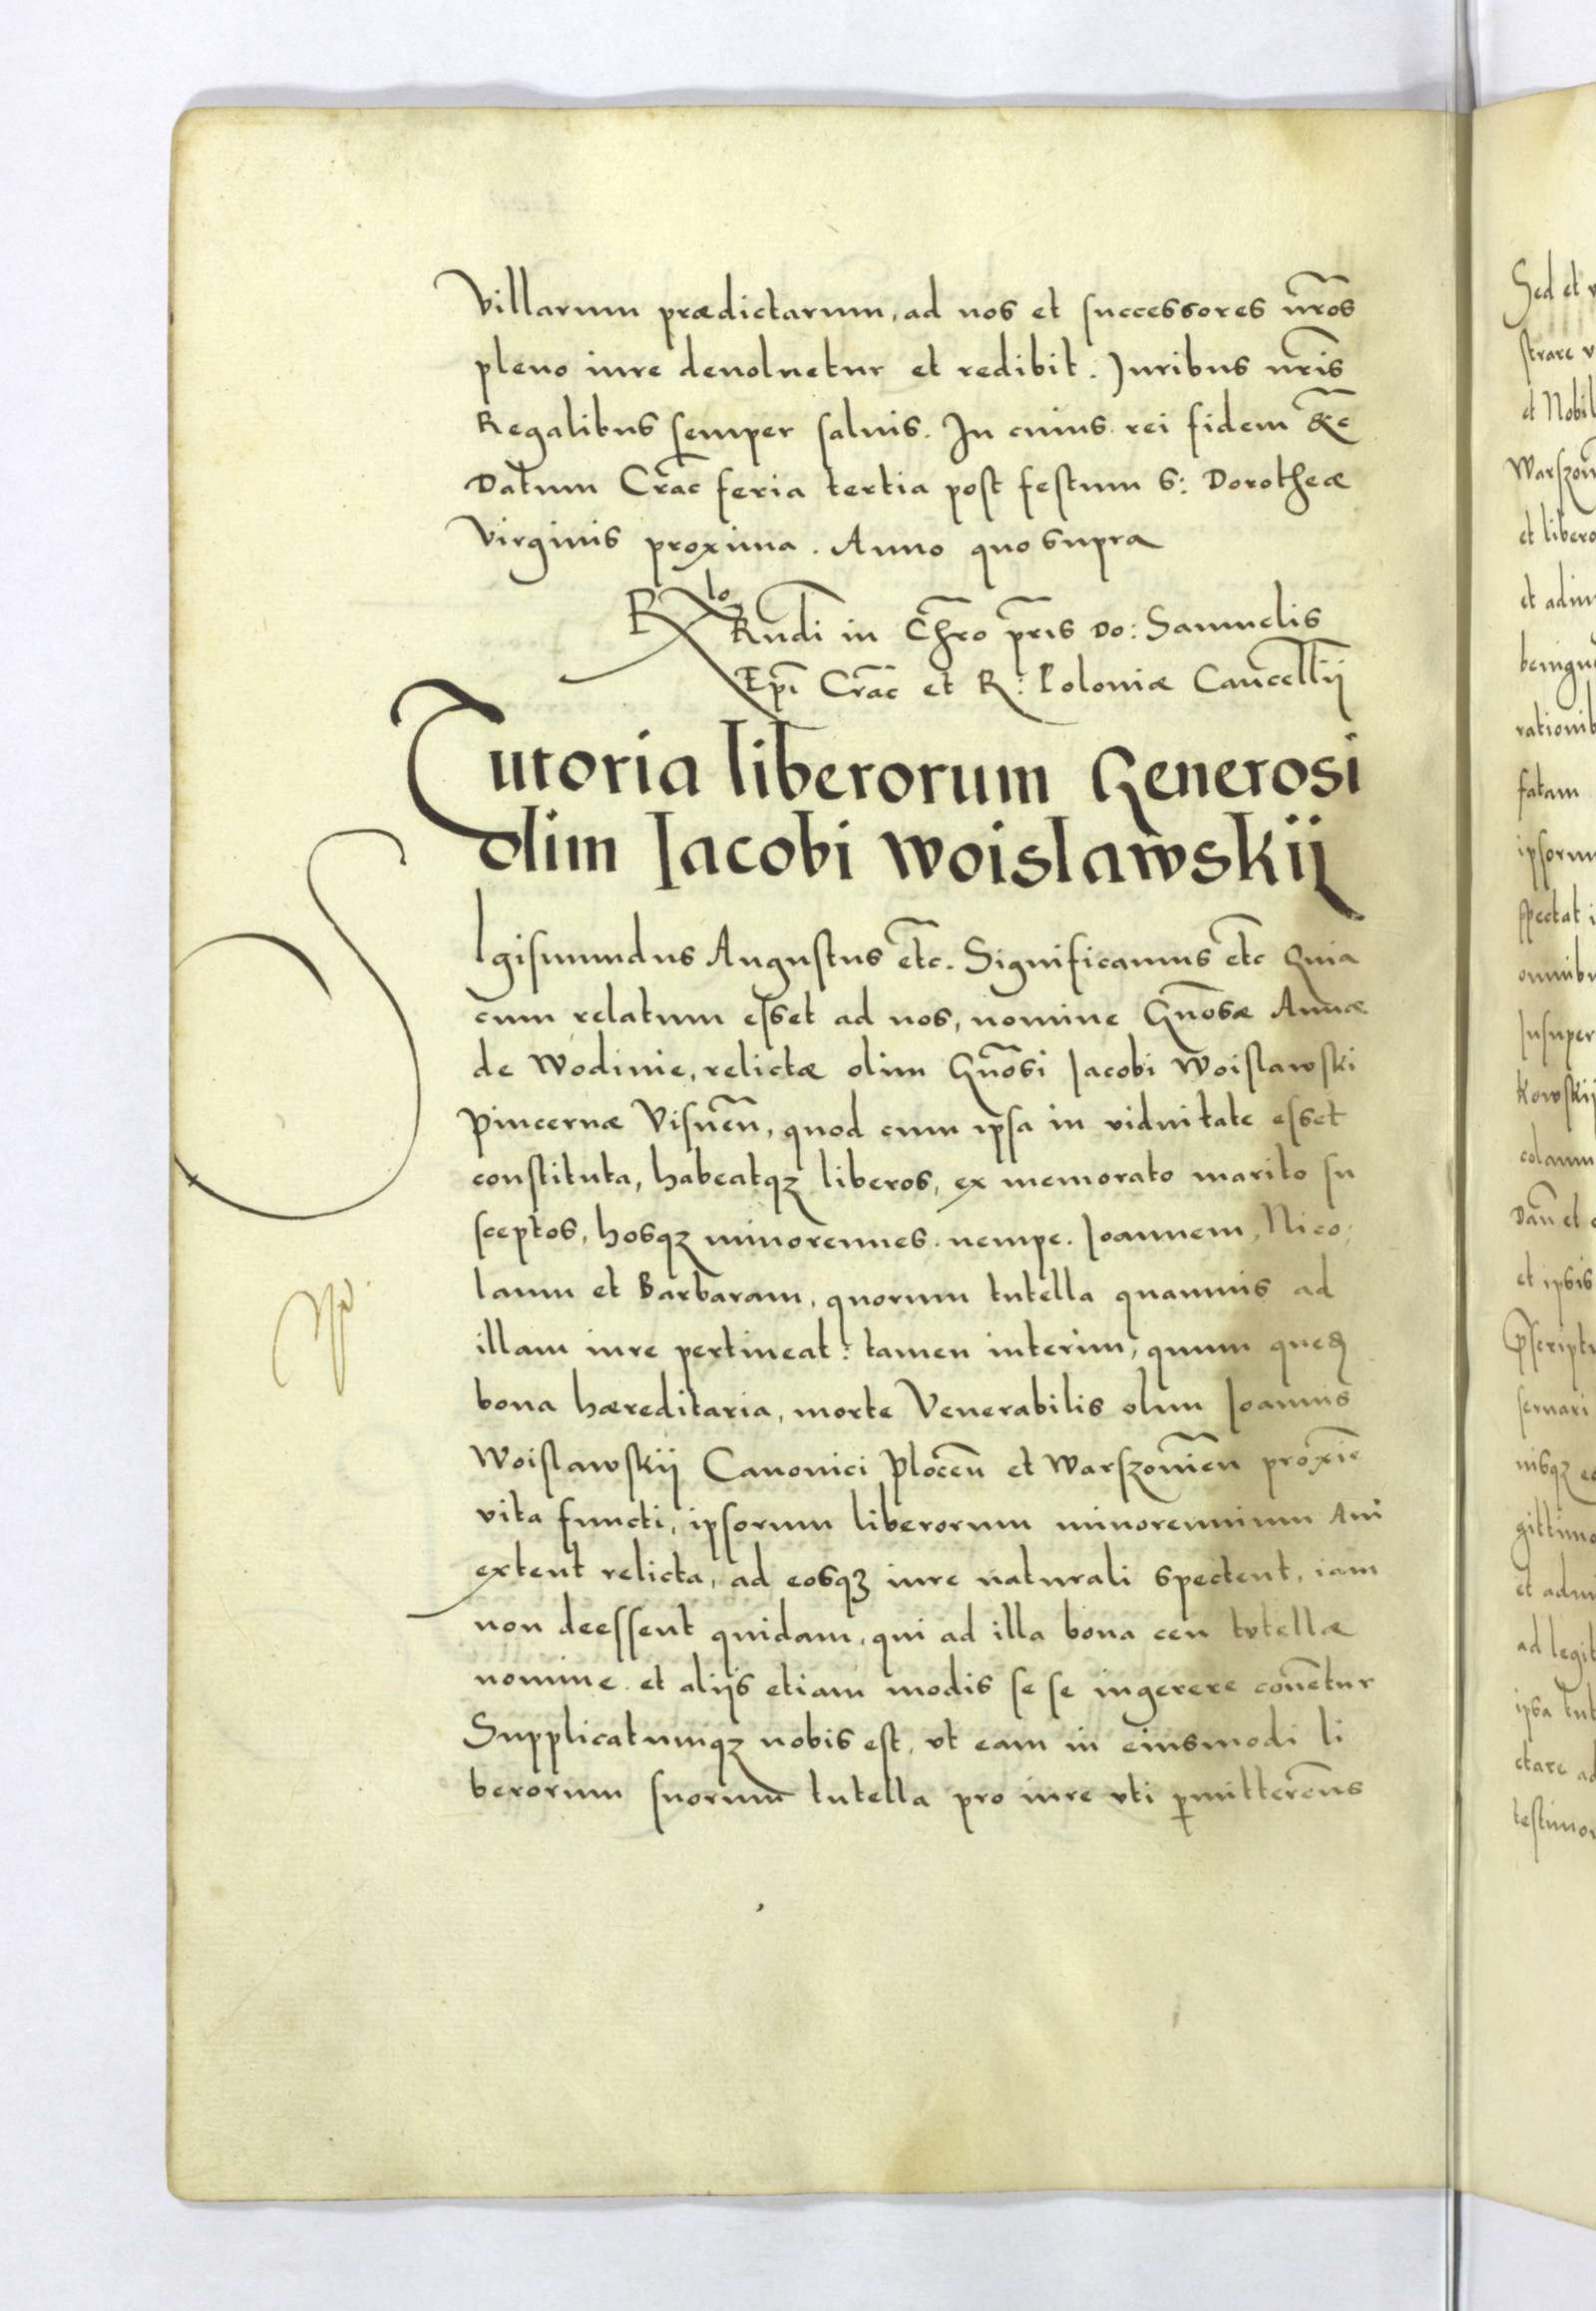 Villarum prædictarum, ad nos et successores nr̃os
pleno iure deuoluetur et redibit. Juribus nr̃is
Regalibus semper saluis. In cuius rei fidem &c̃
Datum Crac̃ feria tertia post festum S: Dorotheæ
Virginis proxima. Anno quo supra
Rlo Rñdi in Chr̃o pr̃is Do: Samuelis
Ep̃i Crac̃ et R: Poloniæ Canc̃ellrij
Tutoria liberorum Generosi
olim Jacobi Woislawskij
SIgismundus Augustus etc̃. Significamus etc̃ Quia
cum relatum esset ad nos, nomine Gñosæ Annæ
de Wodinie, relictæ olim Gñosi Jacobi Woislawski
Pincernæ Visneñ, quod cum ipsa in viduitate esset
constituta, habeatqz liberos, ex memorato marito su
sceptos, hosqz minorennes. nempe. Joannem, Nico,
laum et Barbaram, quorum tutella quamuis ad
illam iure pertineat: tamen interim, quum quedã
bona hæreditaria, morte Venerabilis olim Joannis
Woislawskij Canonici Ploceñ et Warszouieñ proxĩe
vita functi, ipsorum liberorum minorennium Aui
extent relicta, ad eosqz iure naturali spectent, iam
non deessent quidam, qui ad illa bona ceu tutellæ
nomine et alijs etiam modis se se ingerere conẽtur
Supplicatumqz nobis est, vt eam in eiusmodi li
berorum suorum tutella pro iure vti ꝑmitterem̃s
Sed et
strare
et Nobil
Warszou
et libero
et adm
benign
rationib
fatam
ipsorum
spectat i
omnibu
Insuper
kowskij
colaum
Dañ et
et ipsis
p̃script
seruari
nisqz
gittimo
et adm
ad legit
ipsa tut
ctare ad
testimon